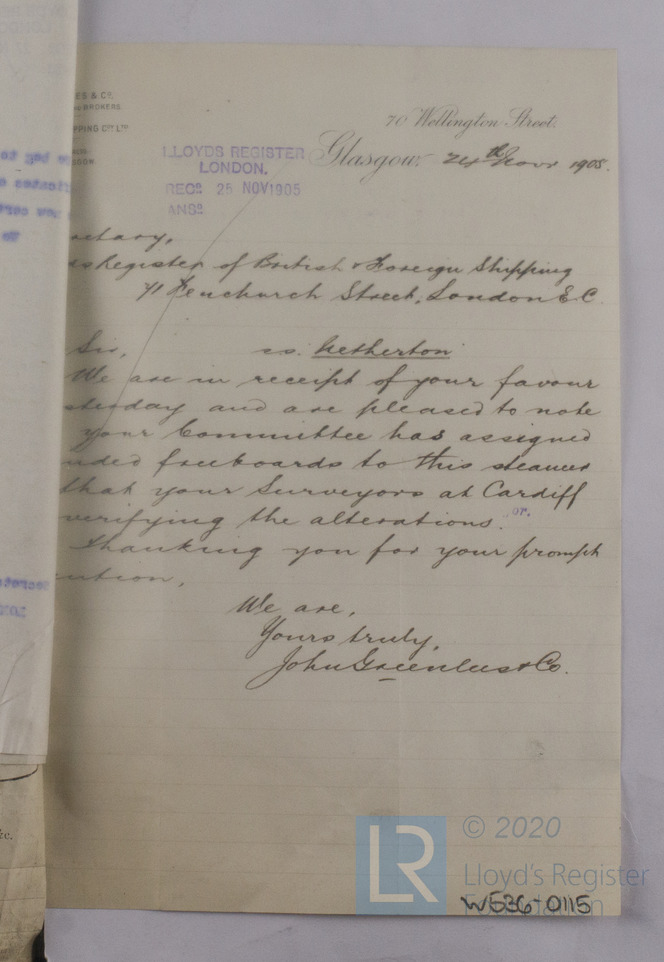 ES & Co.
BROKERS.
PPING Co. LTD
70 Wellington Street.
Glasgow, 24th Novr 1905.
LLOYDS REGISTER
LONDON.
REC? 25 NOV 1905
ANS?
retary,
ds Register of British & Foreign Shipping
71 Fenchurch Street, London E.C.
Sir,
ss. Netherton
We are in receipt of your favour
sterday and are pleased to note
your Committee has assigned
nded freeboards to this steamer
that your Surveyors at Cardiff
verifying the alterations. or.
Thanking you for your prompt
ention,
We are,
Yours truly,
John Greenlees & Co.
&c.
LR
© 2020
Lloyd's Register
Foundation
WE36-0115